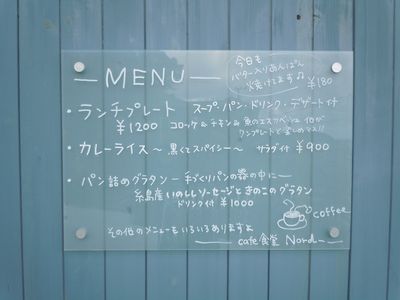 今日も
バター入りあんぱん
焼けてます♫
¥180
MENU
・ランチプレート スープ・パン・ドリンク・デザート付
¥1200 コロッケ&チキン&魚のエスカベッシュ etcが
ワンプレートで楽しめマス!!
・カレーライス〜 黒くてスパイシー〜 サラダ付 ¥900
・パン詰めグラタン ー手づくりパンの器の中にー
糸島産いのししソーセージときのこのグラタン
ドリンク付 ¥1000
coffee
その他のメニューもいろいろありますよ
cafe食堂 Nord